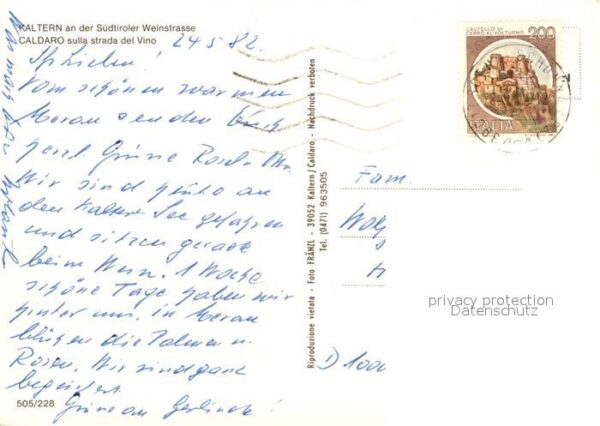 KALTERN an der Südtiroler Weinstrasse
CALDARO sulla strada del Vino
24.5.82.
Vom schönen warmen
Meran senden Euch
herzl. Grüsse
Wir sind heute an
den Kalterer See gefahren
und sitzen gerade
beim Wein. 1 Woche
schöne Tage haben wir
hinter uns. in Meran
blühen die Palmen u.
Rosen. Wir sind ganz
begeistert.
505/228
Riproduzione vietata - Foto FRÄNZL - 39052 Kaltern/Caldaro - Nachdruck verboten
Tel. (0471) 963505
CASTELLO DI
CERRO AL VOLTURNO
200
ITALIA
Fam.
Wolf
D 1000
privacy protection
Datenschutz